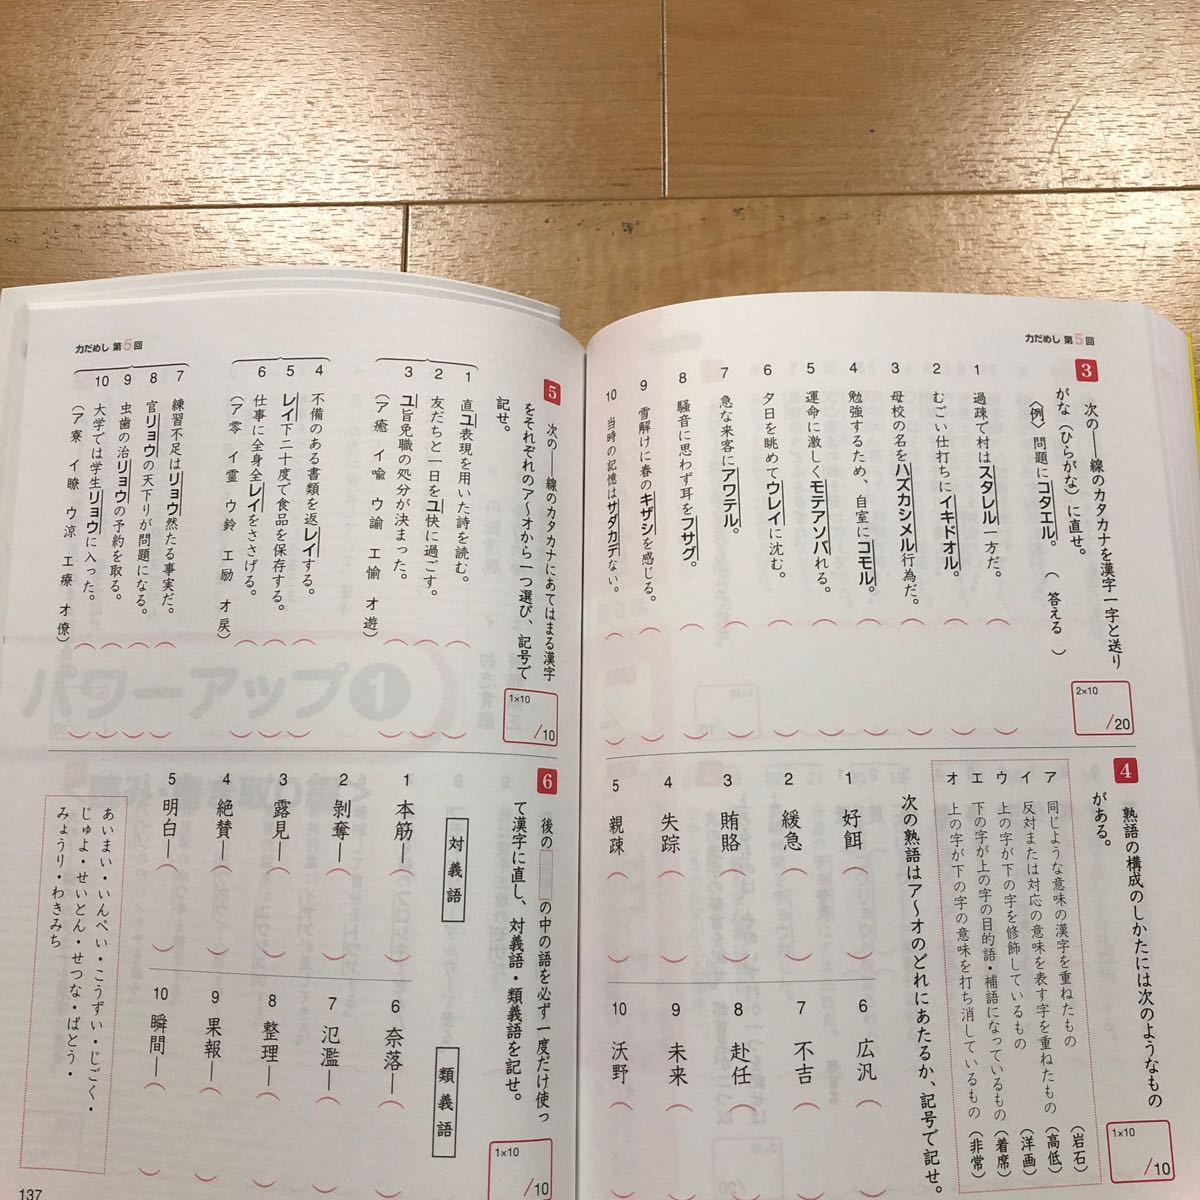 力だめし 第5回
3
次の――線のカタカナを漢字一字と送り
がな（ひらがな）に直せ。
〈例〉問題にコタエル。（ 答える ）
1 過疎で村はスタレル一方だ。（ ）
2 むごい仕打ちにイキドオル。（ ）
3 母校の名をハズカシメル行為だ。（ ）
4 勉強するため、自室にコモル。（ ）
5 運命に激しくモテアソバれる。（ ）
6 夕日を眺めてウレイに沈む。（ ）
7 急な来客にアワテル。（ ）
8 騒音に思わず耳をフサグ。（ ）
9 雪解けに春のキザシを感じる。（ ）
10 当時の記憶はサダカでない。（ ）
2×10
/20
4
熟語の構成のしかたには次のようなもの
がある。
ア 同じような意味の漢字を重ねたもの（岩石）
イ 反対または対応の意味を表す字を重ねたもの（高低）
ウ 上の字が下の字を修飾しているもの（洋画）
エ 下の字が上の字の目的語・補語になっているもの（着席）
オ 上の字が下の字の意味を打ち消しているもの（非常）
次の熟語はア〜オのどれにあたるか、記号で記せ。
1×10
/10
1 好餌（ ）
2 緩急（ ）
3 賄賂（ ）
4 失踪（ ）
5 親疎（ ）
6 広汎（ ）
7 不吉（ ）
8 赴任（ ）
9 未来（ ）
10 沃野（ ）
力だめし 第5回
5
次の――線のカタカナにあてはまる漢字
をそれぞれのア〜オから一つ選び、記号で
記せ。
1×10
/10
1 直ユ表現を用いた詩を読む。（ ）
2 友だちと一日をユ快に過ごす。（ ）
3 ユ旨免職の処分が決まった。（ ）
（ア 癒 イ 喩 ウ 諭 エ 愉 オ 遊）
4 不備のある書類を返レイする。（ ）
5 レイ下二十度で食品を保存する。（ ）
6 仕事に全身全レイをささげる。（ ）
（ア 零 イ 霊 ウ 鈴 エ 励 オ 戻）
7 練習不足はリョウ然たる事実だ。（ ）
8 官リョウの天下りが問題になる。（ ）
9 虫歯の治リョウの予約を取る。（ ）
10 大学では学生リョウに入った。（ ）
（ア 寮 イ 瞭 ウ 涼 エ 療 オ 僚）
パワーアップ1
6
後の の中の語を必ず一度だけ使っ
て漢字に直し、対義語・類義語を記せ。
1×10
/10
対義語
1 本筋―（ ）
2 剝奪―（ ）
3 露見―（ ）
4 絶賛―（ ）
5 明白―（ ）
類義語
6 奈落―（ ）
7 氾濫―（ ）
8 整理―（ ）
9 果報―（ ）
10 瞬間―（ ）
あいまい・いんぺい・こうずい・じごく・
じゅよ・せいとん・せつな・ばとう・
みょうり・わきみち
137